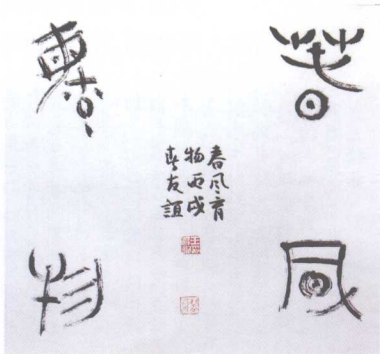 春風
育物
春风育
物丙戌
春友誼